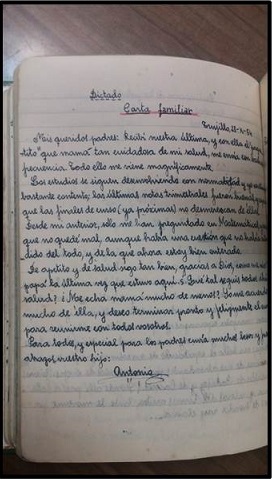 Dictado
Carta familiar
Trujillo
Mis queridos padres: Recibí vuestra última, y con ella el
tito "que mamá" tan cuidadosa de mi salud, me envía con
frecuencia. Todo ello me viene magníficamente.
Los estudios se siguen desenvolviendo con normalidad y
bastante contento; las últimas notas trimestrales fueron buenas, y
que las finales de curso (ya próximas) no desmerezcan de ellas.
Desde mi anterior, sólo me han preguntado en Matemáticas,
que no quedé mal, aunque había una cuestión que no había
dido del todo, y de la que ahora estoy bien enterado.
De apetito y de salud sigo tan bien, gracias a Dios, como me
papá la última vez que estuvo aquí. ¿Qué tal seguís todos de
salud? ¿Me echa mamá mucho de menos? Yo me acuerdo
mucho de ella, y deseo terminar pronto y felizmente el
para reunirme con todos vosotros.
Para todos, y especial para los padres envía muchos besos y
abrazos vuestro hijo:
Antonio